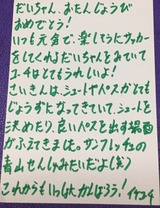 だいちゃん、おたんじょうび
おめでとう!
いつも元気で、楽しそうにサッカー
をしてくれるだいちゃんをみていて
コーチはとてもうれしいよ!
さいきんは、シュートやパスがとても
じょうずになってきていて、シュートを
決めたり、良いパスを出す場面
がふえてきまた。サンフレッチェの
青山せんしゅみたいだよ(笑)
これからもいっしょにがんばろう!